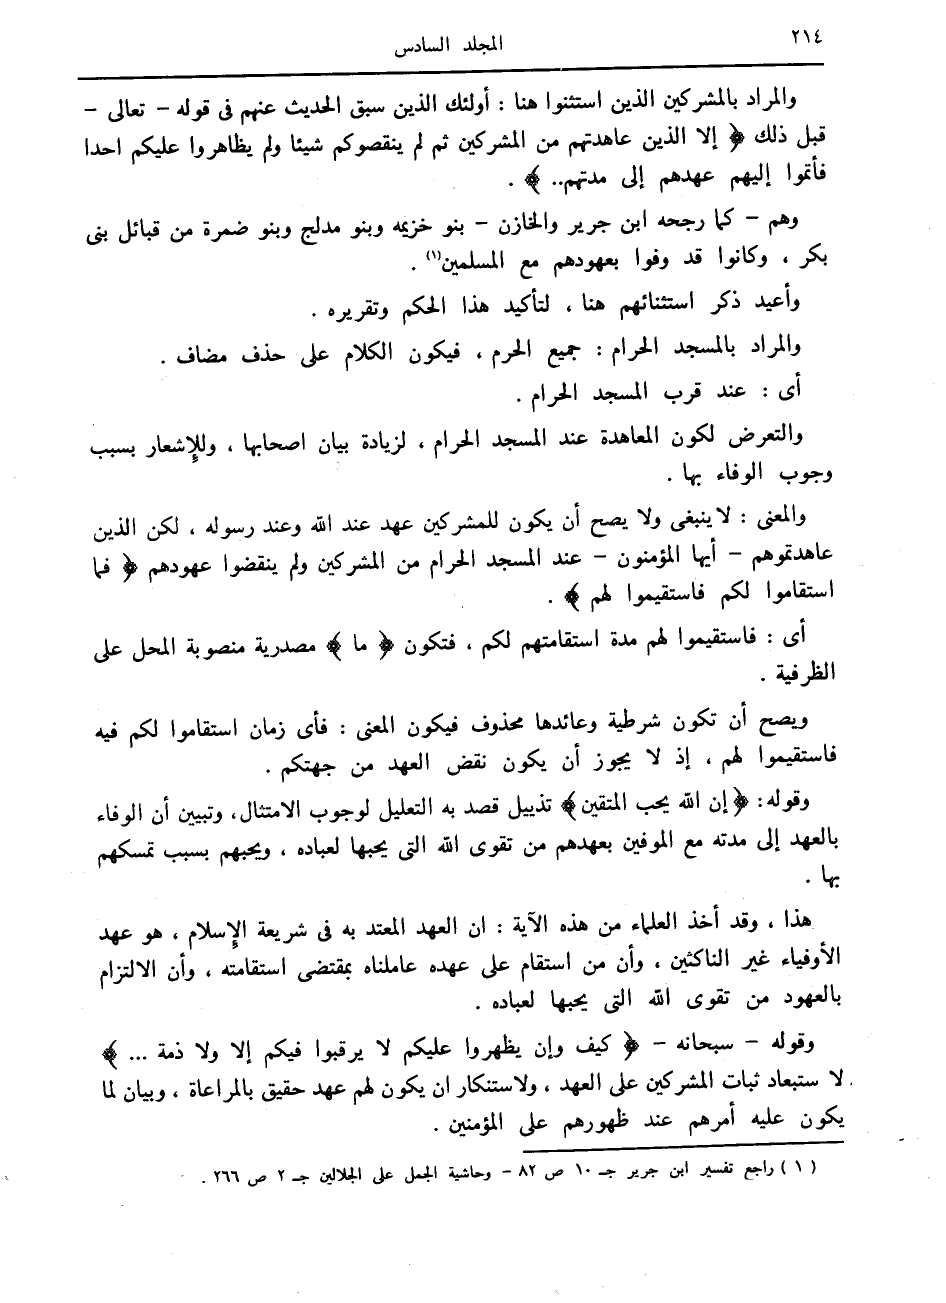 ٢١٤
المجلد السادس
والمراد بالمشركين الذين استثنوا هنا : أولئك الذين سبق الحديث عنهم فى قوله – تعالى –
قبل ذلك ﴿ إلا الذين عاهدتم من المشركين ثم لم ينقصوكم شيئا ولم يظاهروا عليكم احدا
فأتموا إليهم عهدهم إلى مدتهم.. ﴾ .
وهم – كما رجحه ابن جرير والخازن – بنو خزيمه وبنو مدلج وبنو ضمرة من قبائل بنى
بكر ، وكانوا قد وفوا بعهودهم مع المسلمين(١) .
وأعيد ذكر استثنائهم هنا ، لتأكيد هذا الحكم وتقريره .
والمراد بالمسجد الحرام : جميع الحرم ، فيكون الكلام على حذف مضاف .
أى : عند قرب المسجد الحرام .
والتعرض لكون المعاهدة عند المسجد الحرام ، لزيادة بيان اصحابها ، وللإشعار بسبب
وجوب الوفاء بها .
والمعنى : لا ينبغى ولا يصح أن يكون للمشركين عهد عند الله وعند رسوله ، لكن الذين
عاهدتموهم – أيها المؤمنون – عند المسجد الحرام من المشركين ولم ينقضوا عهودهم ﴿ فما
استقاموا لكم فاستقيموا لهم ﴾ .
أى : فاستقيموا لهم مدة استقامتهم لكم ، فتكون ﴿ ما ﴾ مصدرية منصوبة المحل على
الظرفية .
ويصح أن تكون شرطية وعائدها محذوف فيكون المعنى : فأى زمان استقاموا لكم فيه
فاستقيموا لهم ، إذ لا يجوز أن يكون نقض العهد من جهتكم .
وقوله: ﴿ إن الله يحب المتقين﴾ تذييل قصد به التعليل لوجوب الامتثال، وتبيين أن الوفاء
بالعهد إلى مدته مع الموفين بعهدهم من تقوى الله التى يحبها لعباده ، ويحبهم بسبب تمسكهم
بها .
هذا ، وقد أخذ العلماء من هذه الآية : ان العهد المعتد به فى شريعة الإسلام ، هو عهد
الأوفياء غير الناكثين ، وأن من استقام على عهده عاملناه بمقتضى استقامته ، وأن الالتزام
بالعهود من تقوى الله التى يحبها لعباده .
وقوله – سبحانه – ﴿ كيف وإن يظهروا عليكم لا يرقبوا فيكم إلا ولا ذمة ... ﴾
لا ستبعاد ثبات المشركين على العهد ، ولاستنكار ان يكون لهم عهد حقيق بالمراعاة ، وبيان لما
يكون عليه أمرهم عند ظهورهم على المؤمنين .
( ١ ) راجع تفسير ابن جرير جـ ١٠ ص ٨٢ – وحاشية الجمل على الجلالين جـ ٢ ص ٢٦٦ .